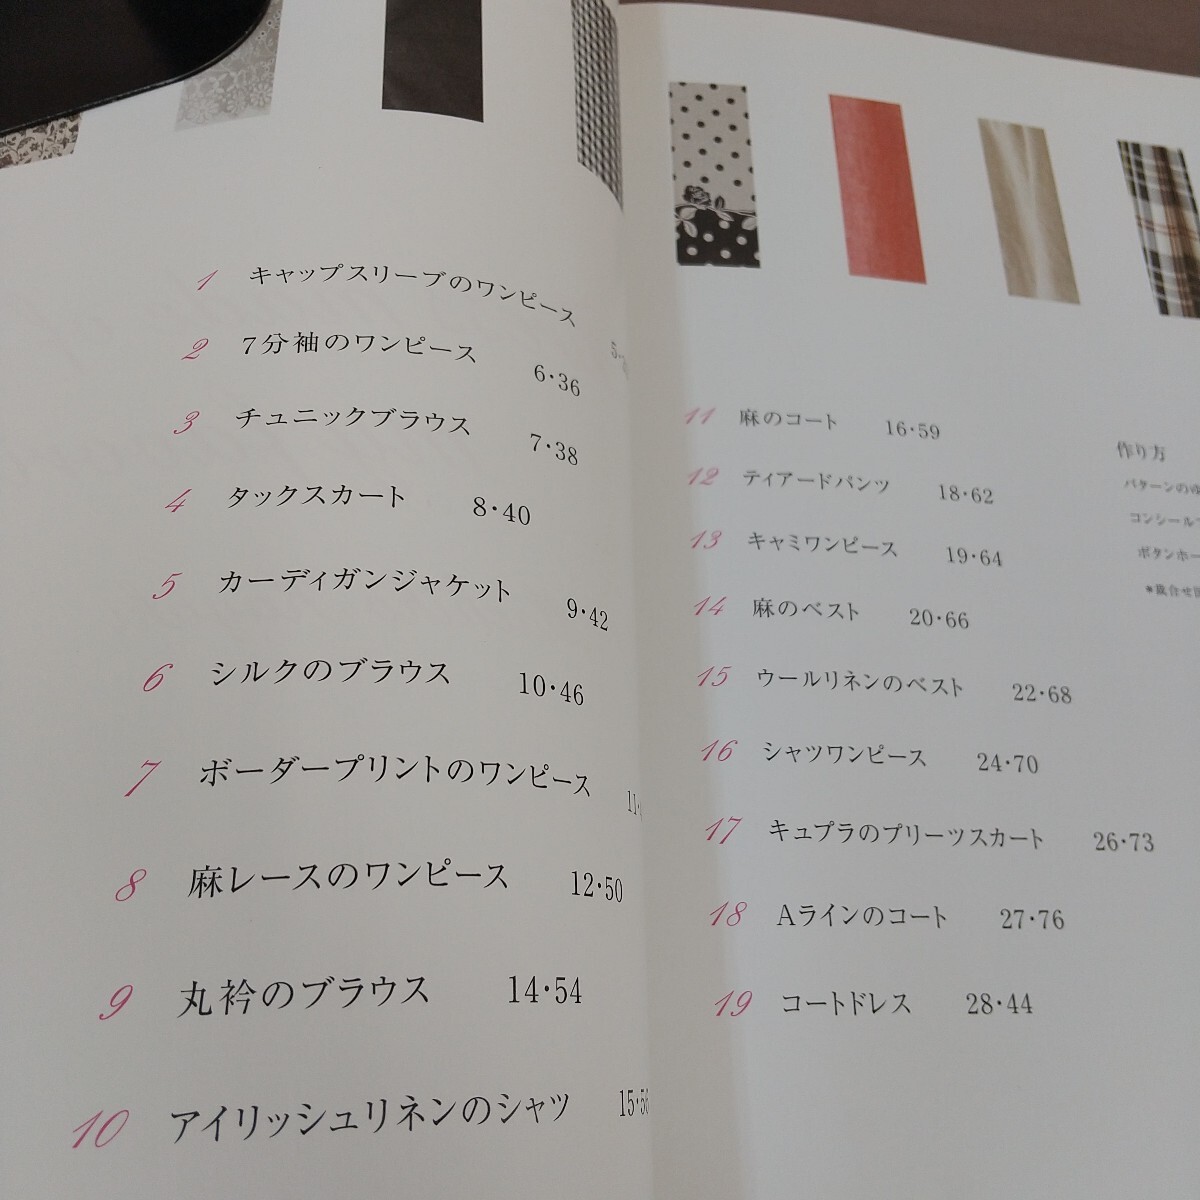 1 キャップスリーブのワンピース
2 7分袖のワンピース 6・36
3 チュニックブラウス 7・38
4 タックスカート 8・40
5 カーディガンジャケット 9・42
6 シルクのブラウス 10・46
7 ボーダープリントのワンピース 11・
8 麻レースのワンピース 12・50
9 丸衿のブラウス 14・54
10 アイリッシュリネンのシャツ 15・56
11 麻のコート 16・59
12 ティアードパンツ 18・62
13 キャミワンピース 19・64
14 麻のベスト 20・66
15 ウールリネンのベスト 22・68
16 シャツワンピース 24・70
17 キュプラのプリーツスカート 26・73
18 Aラインのコート 27・76
19 コートドレス 28・44
作り方
パターンのゆ
コンシール
ボタンホー
*裁合せ図